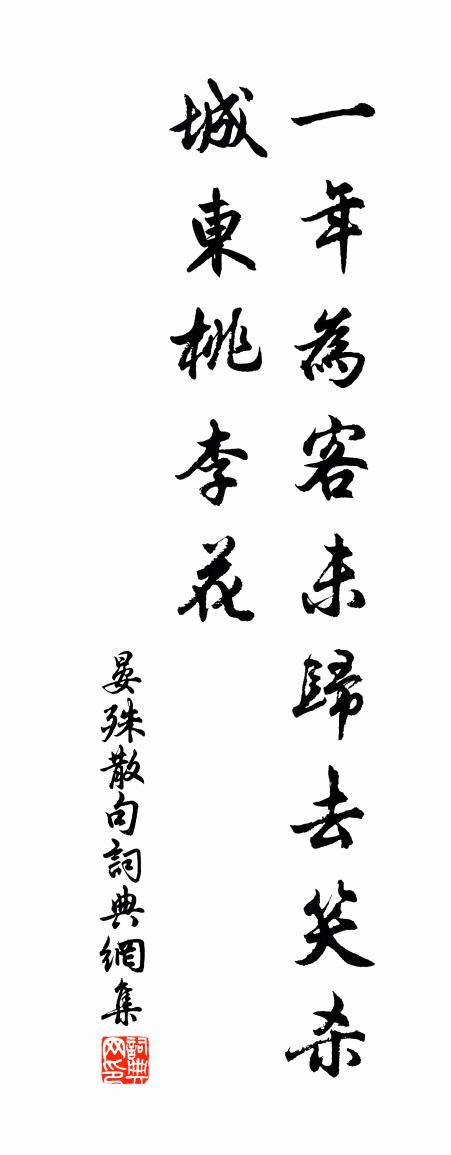 一年為客未歸去笑杀
城東桃李花
晏殊散句詞典網集
詞典网印